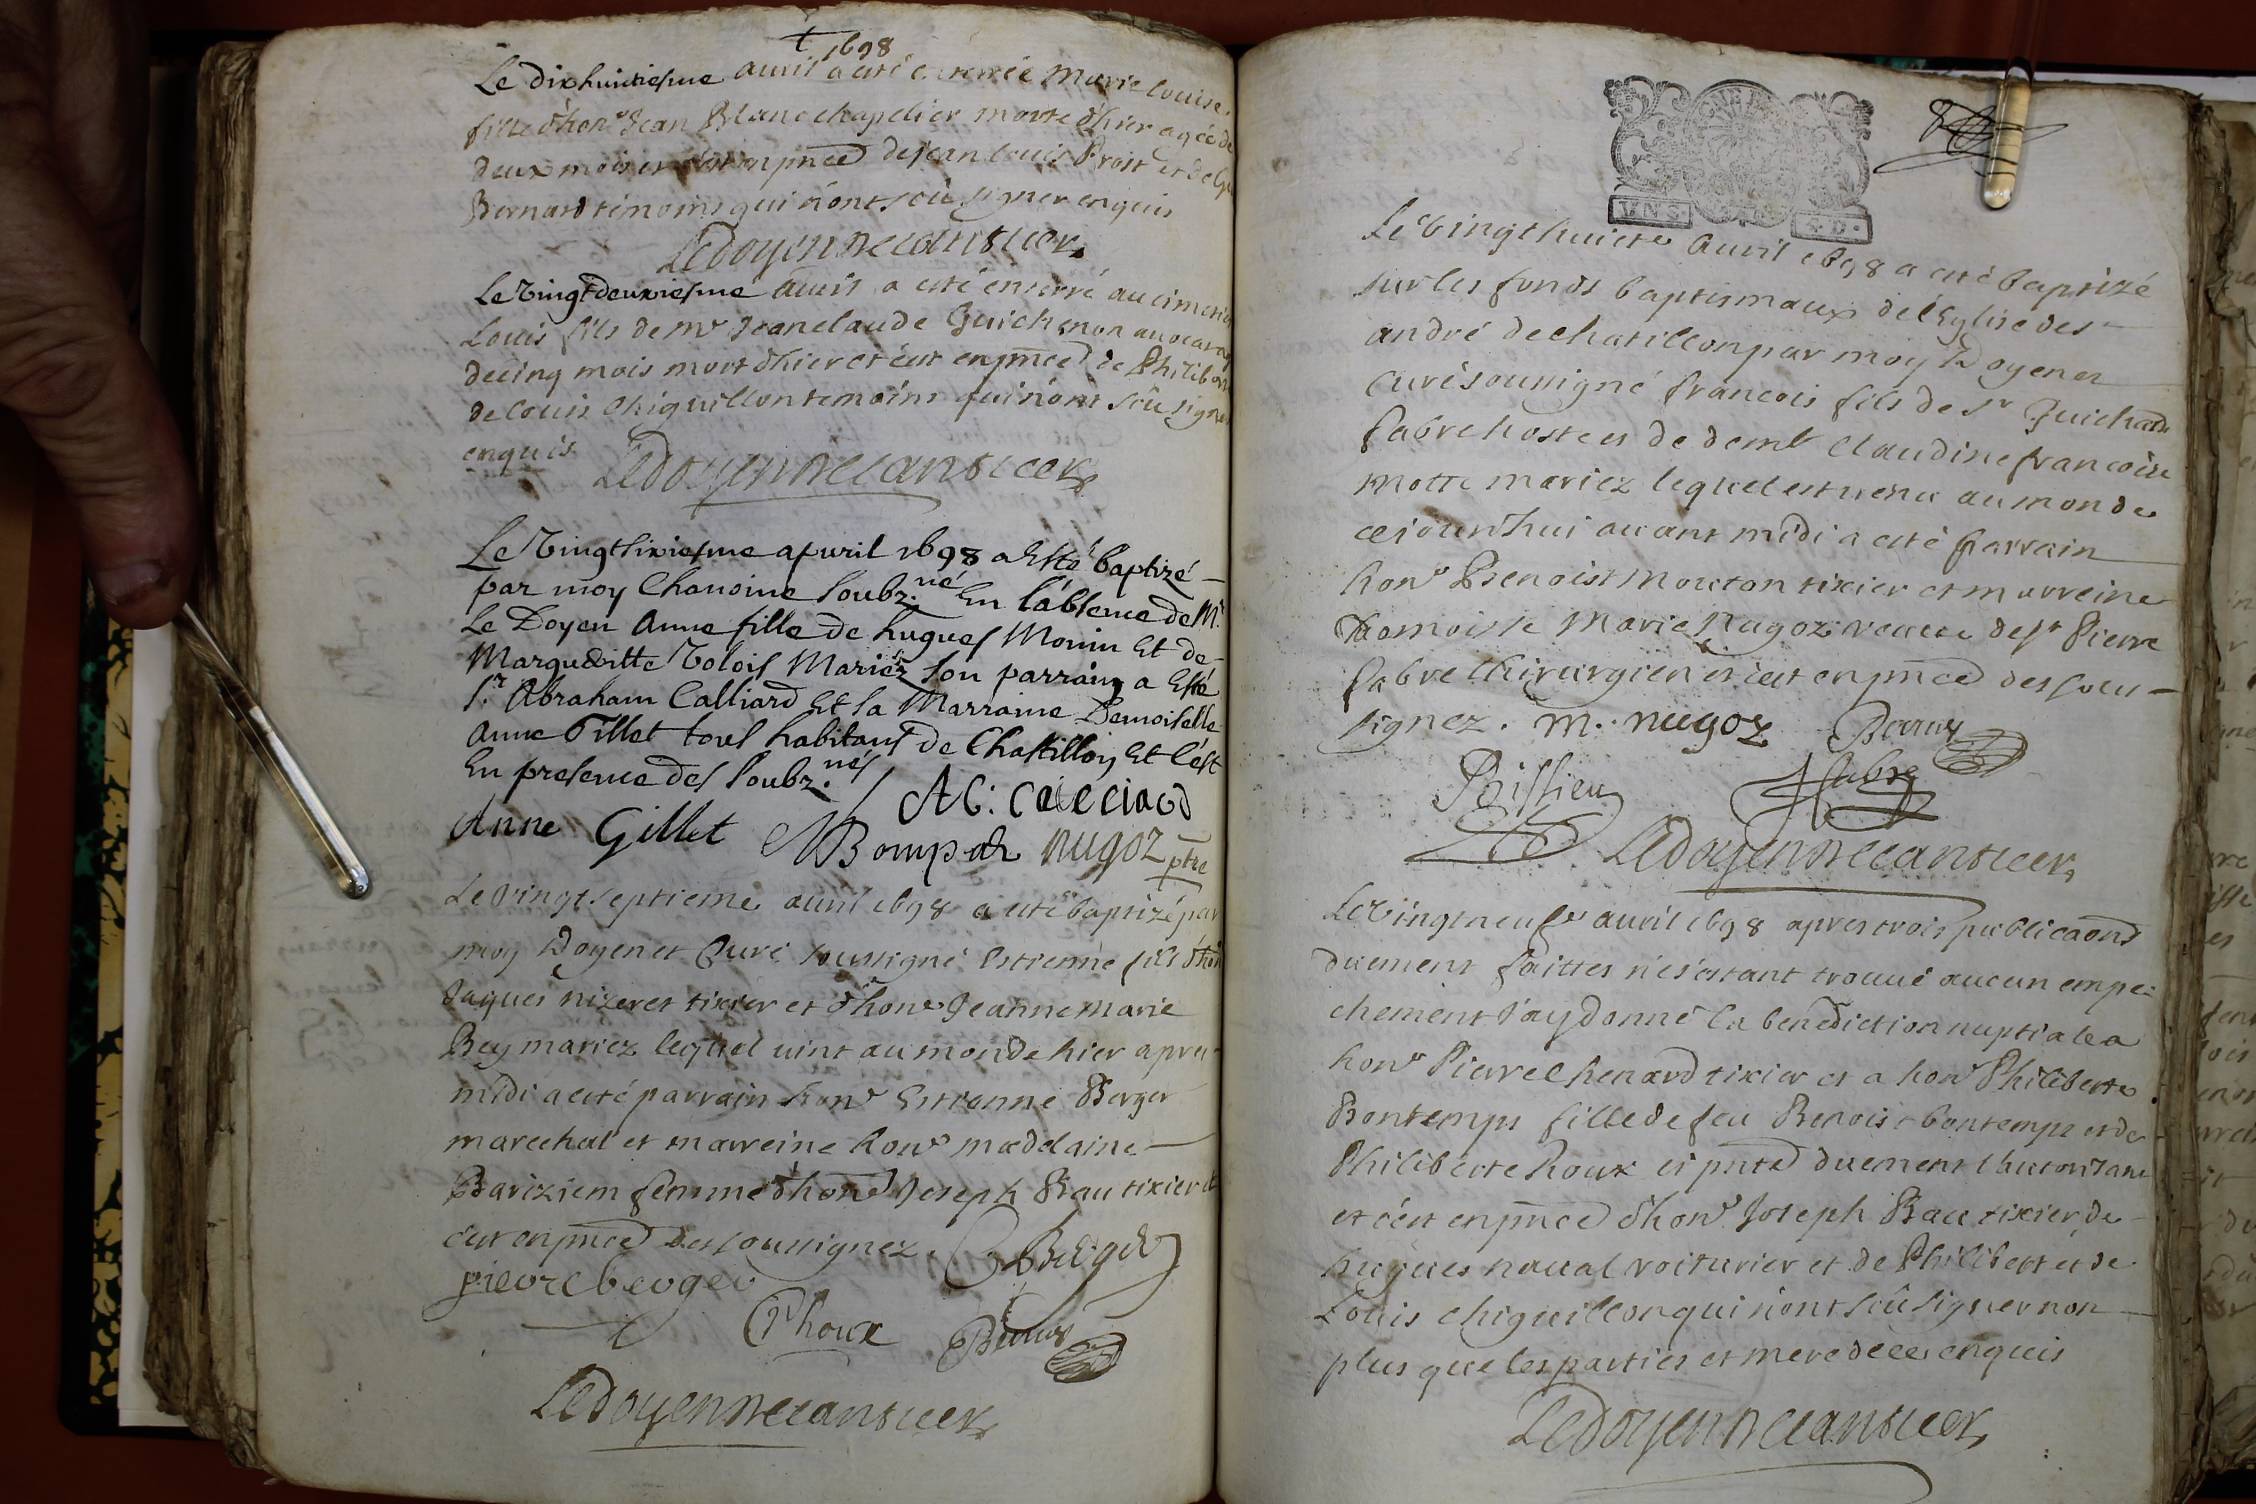 1698
Le dixhuitiesme auril a eté enterrée Marie Louise
fille d'hon.e Jean Blanc chapelier morte d'hier agée de
deux mois et c'est en pnce de Jean Louis Proit et de
Bernard temoins qui n'ont sçu signer enquis
Le Doyen
Le Vingtdeuxiesme auril a eté enterré au cimetiere
Louis fils de Mr Jeanclaude Guichenon auocat agé
de cinq mois mort d'hier et c'est en pnce de Philibert et
de Louis Chiquillon temoins qui n'ont sçu signer
enquis
Le Doyen
Le Vingtsixiesme apuril 1698 a Esté baptizé
par moy Chanoine soubz.né En l'absence de Mr
Le Doyen Anne fille de hugues Monin Et de
Margueritte Tolois Mariez son parrain a Esté
Sr Abraham Calliard Et la Marraine Demoiselle
Anne Gillet tous habitans de Chastillon Et c'est
En presence des soubz.nés
AC: Calliard
Anne Gillet Bompar nugoz ptre
Le vingtseptieme auril 1698 a eté baptizé par
moy Doyen et Curé soussigné Estienne fils d'hon
Jaques nizeret tixier et d'hon.e Jeanne Marie
Bey mariez lequel uint au monde hier apres
midi a eté parrain hon.e Estienne Berger
marechal et marreine hon.e madelaine
femme d'hon.e Joseph Rau tixier et
c'est en pnce des soussignez. Berger
pierre berger
Le Doyen
VNS 4.D.
Le Vingthuicte auril 1698 a eté baptizé
sur les fonds baptismaux de l'Eglise de St
andré de chatillon par moy Doyen et
Curé soussigné francois fils de Sr Guichard
fabre hoste et de demle Claudine francoise
Motte mariez lequel est uenu au monde
ce jourd'huy auant midi a eté parrain
hon.e Benoist Mouton tixier et marreine
Damoiselle Marie Nugoz veuue de Sr Pierre
fabre Chirurgien et c'est en pnce des sous
signez. M. nugoz
Fabre
Le Doyen
Le Vingtneufe auril 1698 apres trois publicaons
duement faittes n'i s'estant trouué aucun empe
chement j'ay donné la benediction nuptiale a
hon.e Pierre Chenard tixier et a hon.e Philiberte
Bontemps fille de feu Benoist bontemps et de
Philiberte Roux ci pnte duement l'autorisant
et c'est en pnce d'hon.e Joseph Rau tixier de
hugues naual voiturier et de Philibert et de
Louis Chiquillon qui n'ont sçu signer non
plus que les parties et mere de enquis
Le Doyen